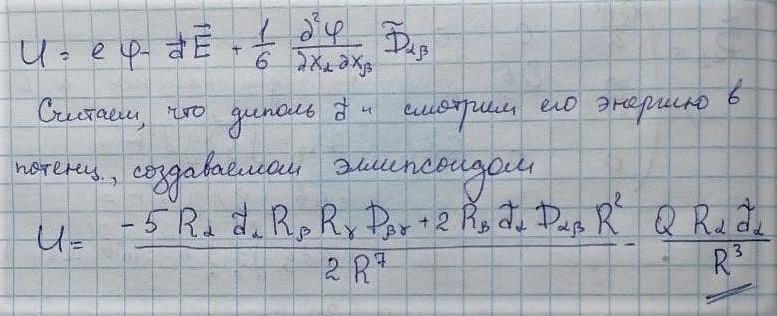 U = e φ - d⃗ E⃗ + 1/6 ∂²φ/∂x_α ∂x_β D̃_αβ
Считаем, что диполь d̃ и смотрим его энергию в
потенц., создаваемом эллипсоидом
U = (-5 R_α d̃_α R_β R_γ D_βγ + 2 R_β d̃_α D_αβ R²) / 2 R⁷ - Q R_α d̃_α / R³